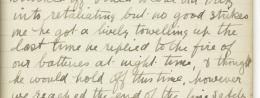 into retaliating but no good strikes
me - he got a lively towelling up the
last time he replied to the fire of
our batteries at night time, & thought
he would hold off this time, however
we reached the end of the line safely